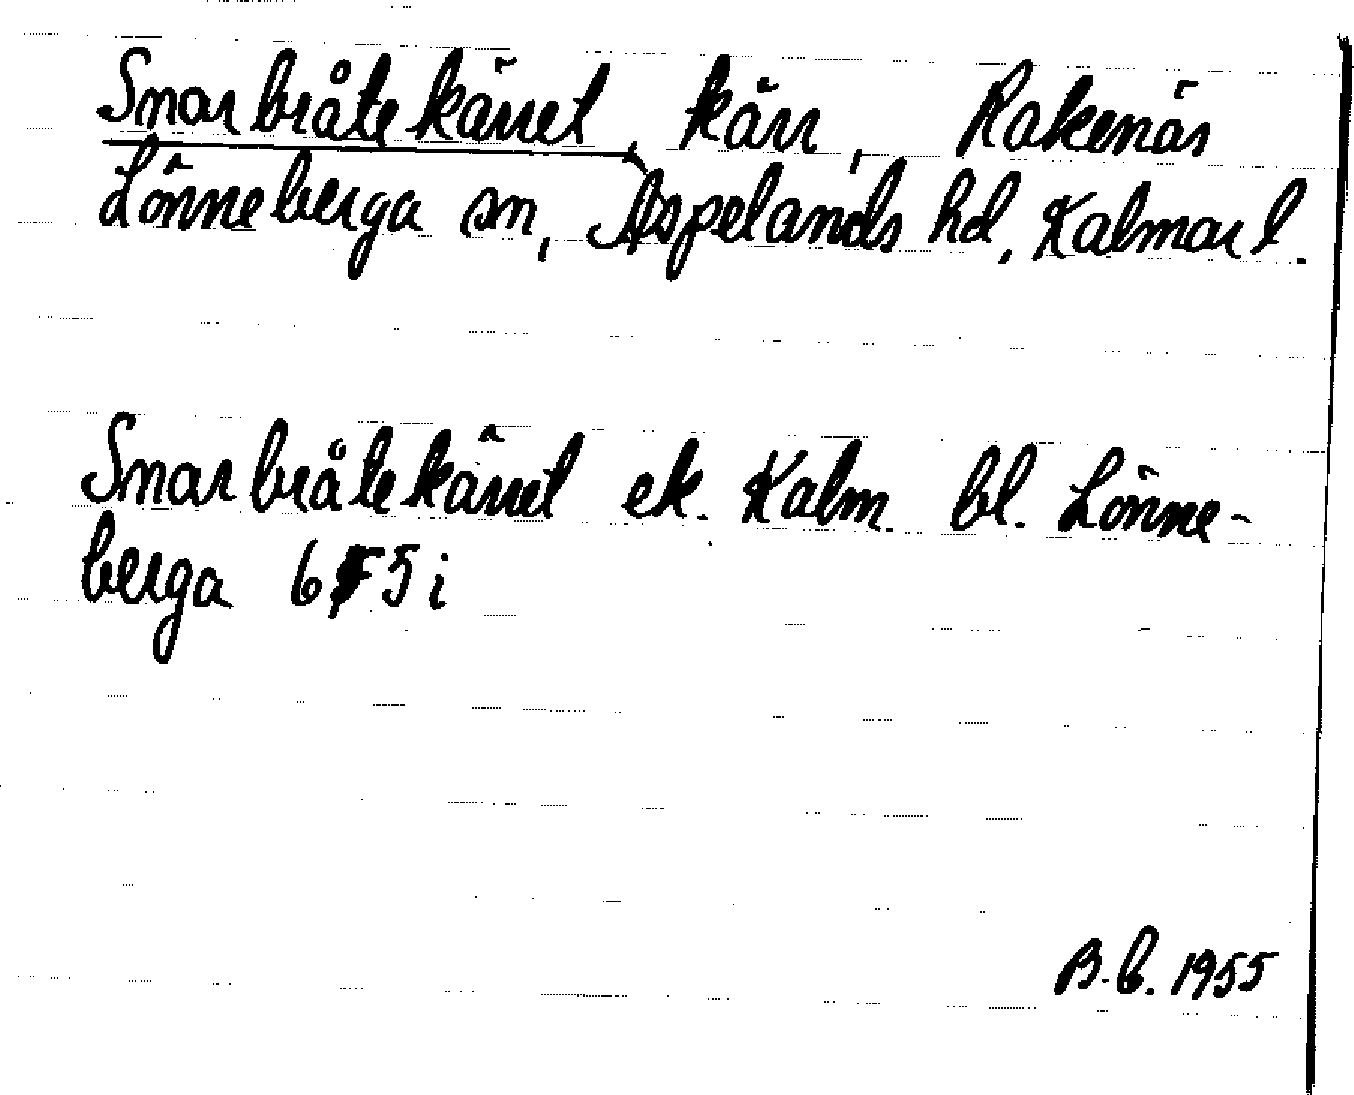 Snarbråtekärret, kärr, Rakenäs
Lönneberga sn, Aspelands hd, Kalmar l.
Snarbråtekärret ek. Kalm. bl. Lönne-
berga 6F5i
B.b. 1955